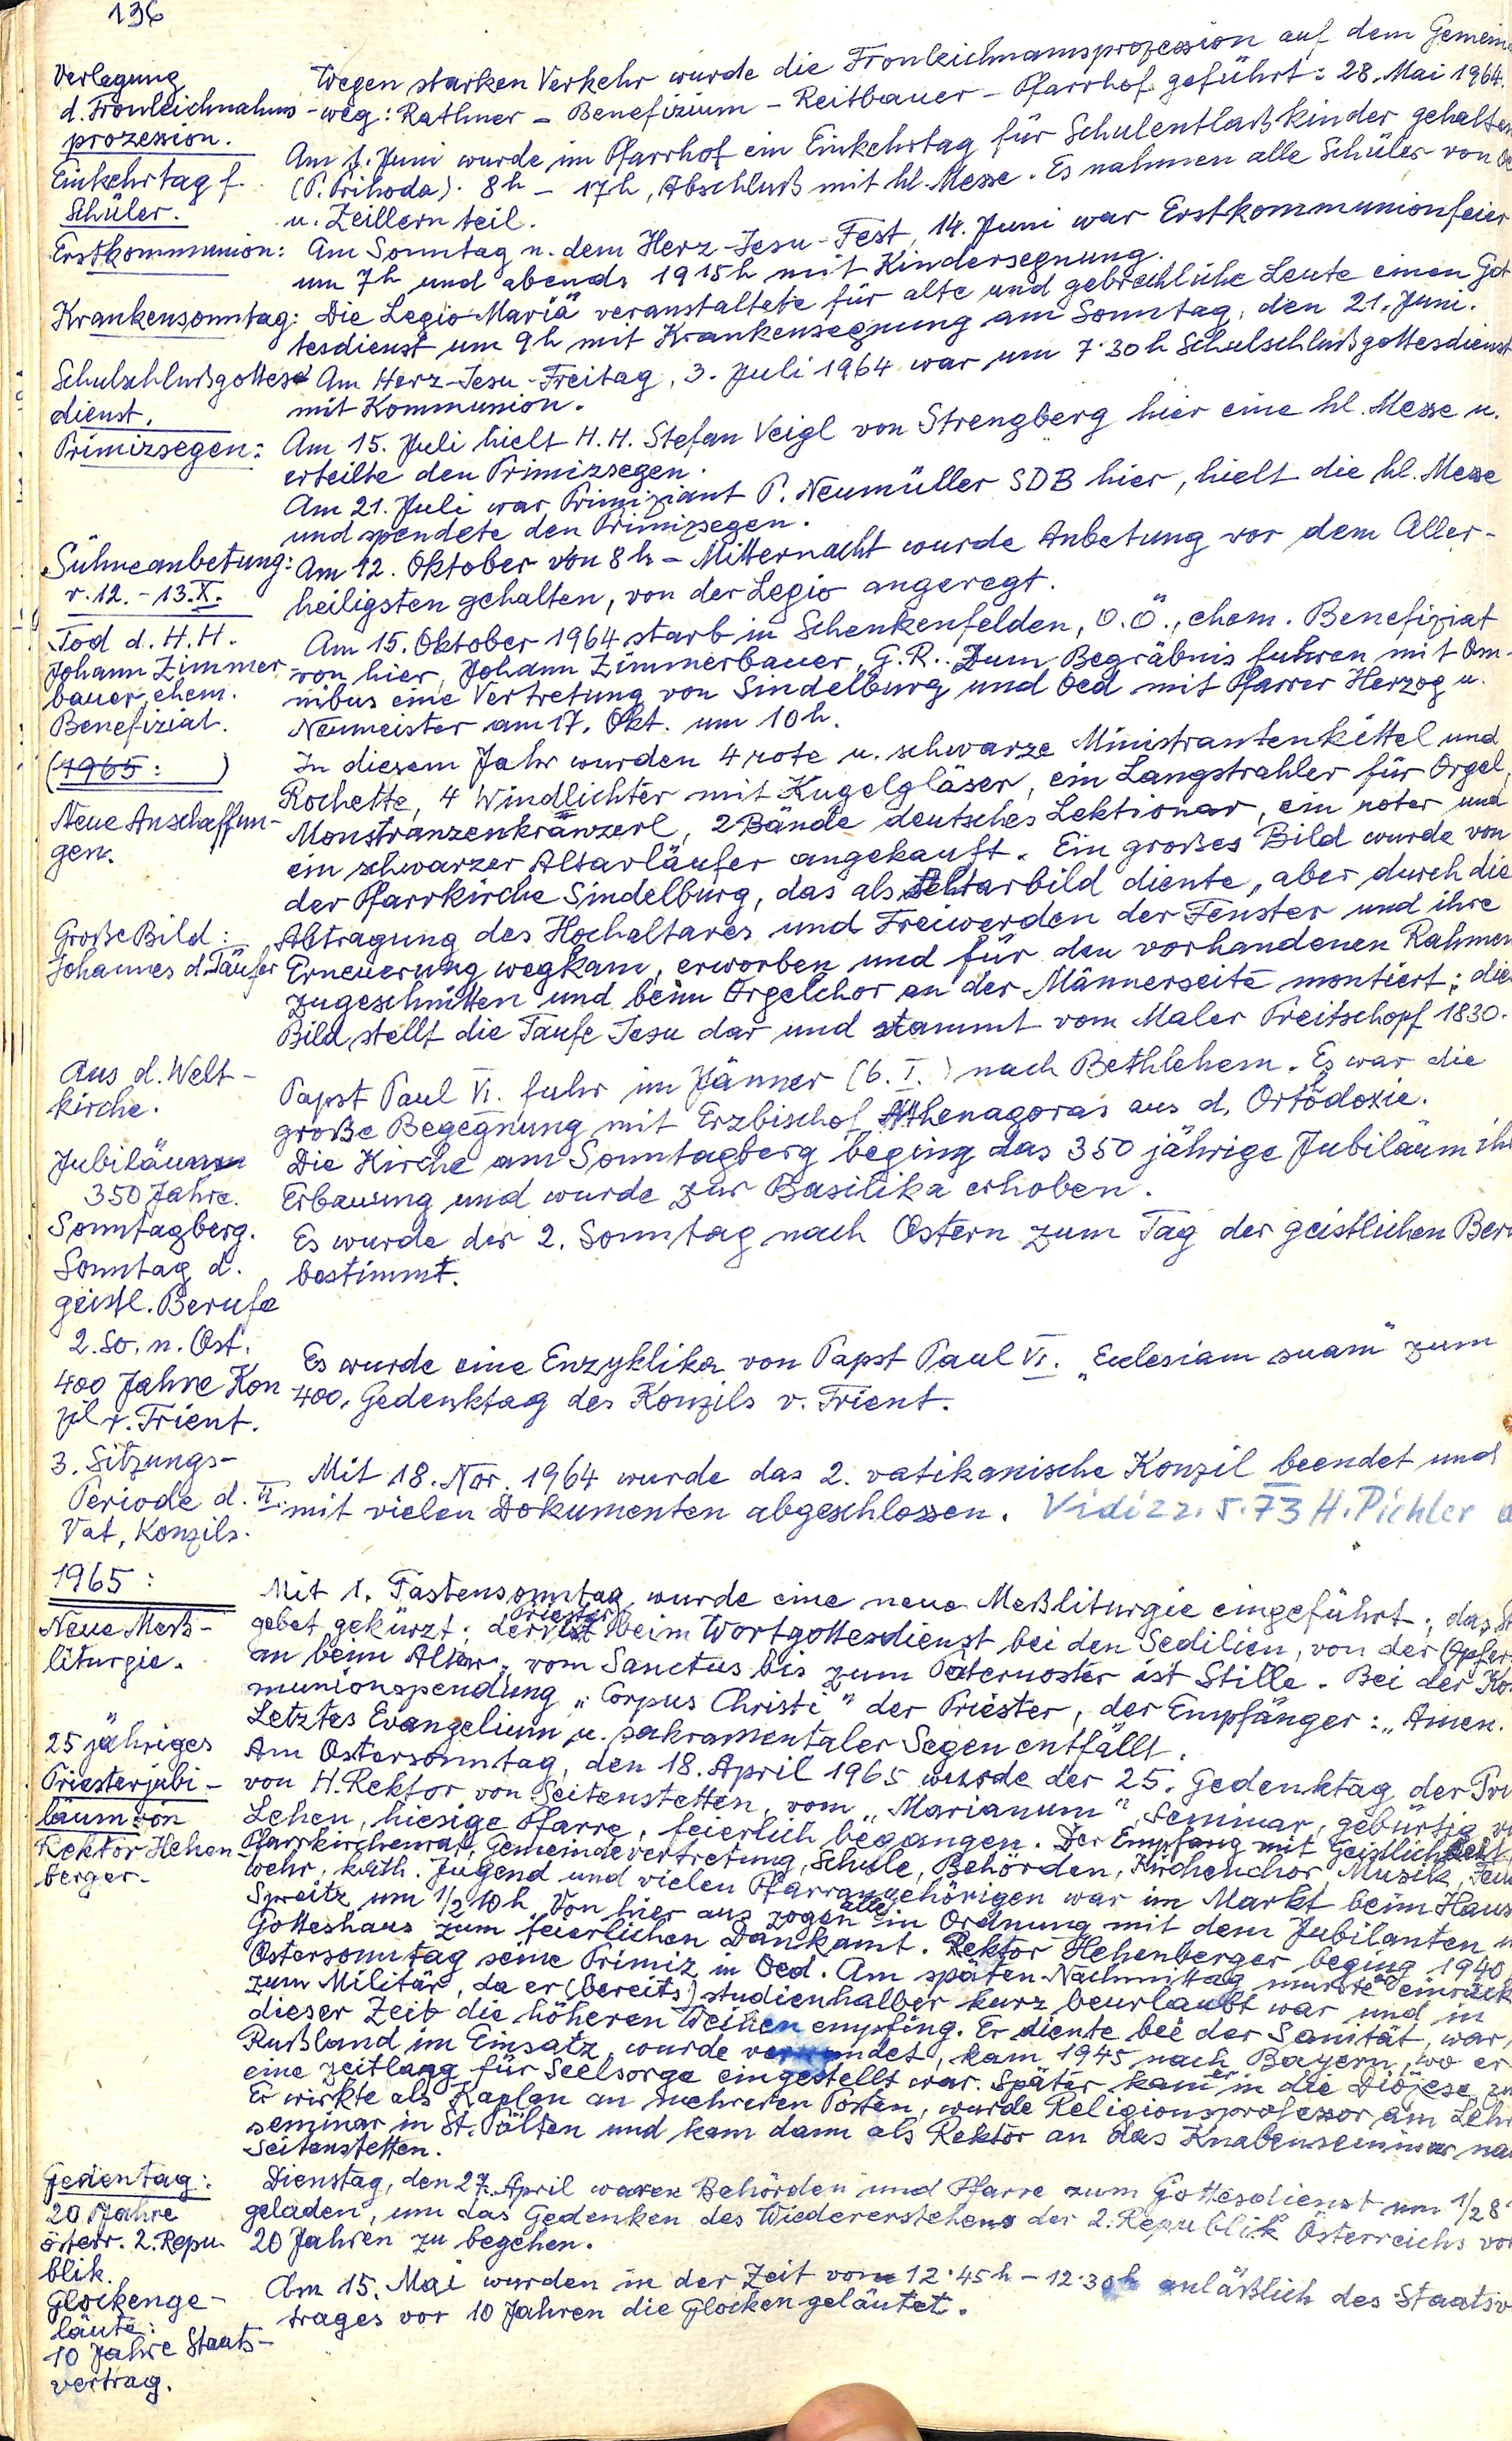 136
Verlegung
d. Fronleichnahms
prozession.
Wegen starken Verkehr wurde die Fronleichnamsprozession auf dem Gemein
-weg: Rathner - Benefizium - Reitbauer - Pfarrhof geführt: 28. Mai 1964.
Einkehrtag f.
Schüler.
Am 1. Juni wurde im Pfarrhof ein Einkehrtag für Schulentlaßkinder gehalten
(P. Prihoda). 8h - 17h, Abschluß mit hl. Messe. Es nahmen alle Schüler von Oe
u. Zeillern teil.
Erstkommunion:
Am Sonntag n. dem Herz-Jesu-Fest, 14. Juni war Erstkommunionfeier
um 7h und abends 1915h mit Kindersegnung.
Krankensonntag:
Die Legio Mariä veranstaltete für alte und gebrechliche Leute einen Got
tesdienst um 9h mit Krankensegnung am Sonntag, den 21. Juni.
Schulschlußgottes
dienst.
Am Herz-Jesu-Freitag, 3. Juli 1964 war um 7.30h Schulschlußgottesdienst
mit Kommunion.
Primizsegen:
Am 15. Juli hielt H.H. Stefan Veigl von Strengberg hier eine hl. Messe u.
erteilte den Primizsegen.
Am 21. Juli war Primiziant P. Neumüller SDB hier, hielt die hl. Messe
und spendete den Primizsegen.
Sühneanbetung:
v. 12. - 13. X.
Am 12. Oktober von 8h - Mitternacht wurde Anbetung vor dem Aller-
heiligsten gehalten, von der Legio angeregt.
Tod d. H.H.
Johann Zimmer
bauer, ehem.
Benefiziat.
Am 15. Oktober 1964 starb in Schenkenfelden, O.Ö., ehem. Benefiziat
von hier, Johann Zimmerbauer, G.R.. Zum Begräbnis fuhren mit Om-
nibus eine Vertretung von Sindelburg und Oed mit Pfarrer Herzog u.
Neumeister am 17. Okt. um 10h.
(1965: )
Neue Anschaffun-
gen.
In diesem Jahr wurden 4 rote u. schwarze Ministrantenkittel und
Rochette, 4 Windlichter mit Kugelgläser, ein Langstrahler für Orgel,
Monstranzenkränzerl, 2 Bände deutsches Lektionar, ein roter und
ein schwarzer Altarläufer angekauft. Ein großes Bild wurde von
der Pfarrkirche Sindelburg, das als Altarbild diente, aber durch die
Große Bild:
Johannes d. Täufer
Abtragung des Hochaltares und Freiwerden der Fenster und ihre
Erneuerung wegkam, erworben und für den vorhandenen Rahmen
zugeschnitten und beim Orgelchor an der Männerseite montiert; die
Bild stellt die Taufe Jesu dar und stammt vom Maler Preitschopf 1830.
Aus d. Welt-
kirche.
Papst Paul VI. fuhr im Jänner (6. I.) nach Bethlehem. Es war die
große Begegnung mit Erzbischof Athenagoras aus d. Orthodoxie.
Jubiläum
350 Jahre.
Sonntagberg.
Die Kirche am Sonntagberg beging das 350 jährige Jubiläum ihr
Erbauung und wurde zur Basilika erhoben.
Sonntag d.
geistl. Berufe
2. So. n. Ost.
Es wurde der 2. Sonntag nach Ostern zum Tag der geistlichen Beru
bestimmt.
400 Jahre Kon
zil v. Trient.
Es wurde eine Enzyklika von Papst Paul VI. „Ecclesiam suam" zum
400. Gedenktag des Konzils v. Trient.
3. Sitzungs-
Periode d. II.
Vat. Konzils.
Mit 18. Nov. 1964 wurde das 2. vatikanische Konzil beendet und
mit vielen Dokumenten abgeschlossen. Vidi 22. 5. 73 H. Pichler
1965:
Neue Meß-
liturgie.
Mit 1. Fastensonntag, wurde eine neue Meßliturgie eingeführt; das St
gebet gekürzt; der Priester ist beim Wortgottesdienst bei den Sedilien, von der Opfer
an beim Altar; vom Sanctus bis zum Paternoster ist Stille. Bei der Ko
munionspendung „Corpus Christi" der Priester, der Empfänger: „Amen.
Letztes Evangelium u. sakramentaler Segen entfällt.
25 jähriges
Priesterjubi-
läum von
Rektor Hehen
berger.
Am Ostersonntag, den 18. April 1965 wurde der 25. Gedenktag der Pri
von H. Rektor von Seitenstetten, vom „Marianum", Seminar, gebürtig v
Lehen, hiesige Pfarre, feierlich begangen. Der Empfang mit Geistlichkeit
Pfarrkirchenrat, Gemeindevertretung, Schule, Behörden, Kirchenchor, Musik, Feu
wehr, kath. Jugend und vielen Pfarrangehörigen war im Markt beim Haus
Spreitz um 1/2 10h. Von hier aus zogen alle in Ordnung mit dem Jubilanten
Gotteshaus zum feierlichen Dankamt. Rektor Hehenberger beging 1940
Ostersonntag seine Primiz in Oed. Am späten Nachmittag mußte er einrück
zum Militär, da er (bereits) studienhalber kurz beurlaubt war und in
dieser Zeit die höheren Weihen empfing. Er diente bei der Sanität, war
Rußland im Einsatz, wurde verwundet, kam 1945 nach Bayern, wo er
eine zeitlang für Seelsorge eingestellt war. Später kam er in die Diözese zu
Er wirkte als Kaplan an mehreren Posten, wurde Religionsprofessor am Lehr
seminar in St. Pölten und kam dann als Rektor an das Knabenseminar na
Seitenstetten.
Gedentag:
20 Jahre
österr. 2. Repu
blik.
Dienstag, den 27. April waren Behörden und Pfarre zum Gottesdienst um 1/2 8
geladen, um das Gedenken des Wiedererstehens der 2. Republik Österreichs vor
20 Jahren zu begehen.
Glockenge-
läute:
10 Jahre Staats-
vertrag.
Am 15. Mai wurden in der Zeit von 12.45h - 12.30h anläßlich des Staatsv
trages vor 10 Jahren die Glocken geläutet.